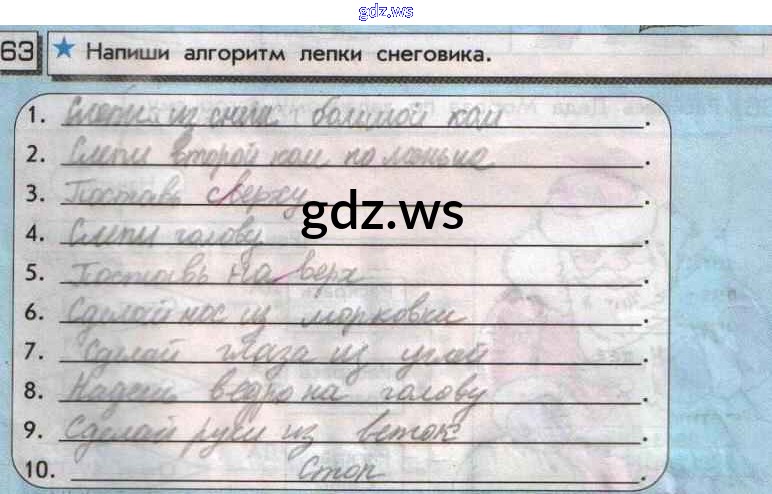 gdz.ws
63 ★ Напиши алгоритм лепки снеговика.
1. Слепи из снега большой ком.
2. Слепи второй ком по меньше.
3. Поставь сверху.
gdz.ws
4. Слепи голову.
5. Поставь на верх.
6. Сделай нос из морковки.
7. Сделай глаза из углей.
8. Надень ведро на голову.
9. Сделай руки из веток.
10. Стоп.